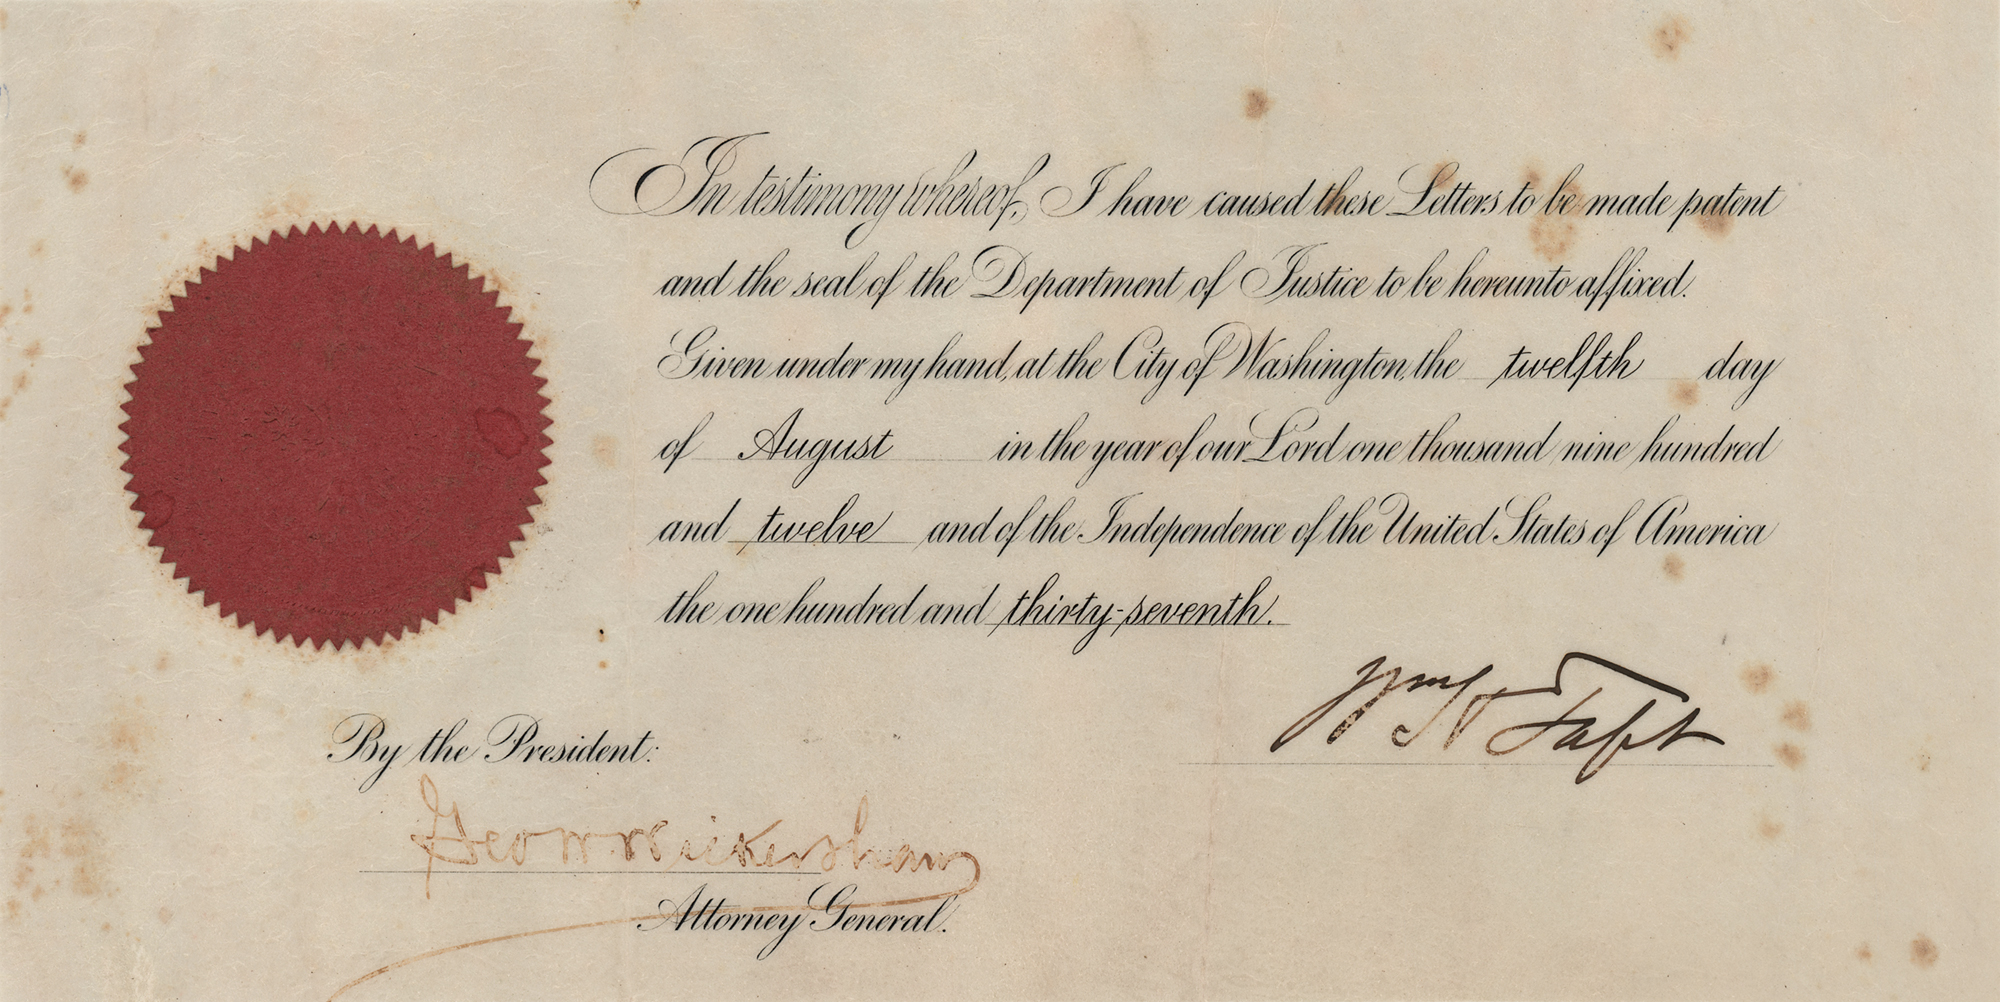 In testimony whereof, I have caused these Letters to be made patent
and the seal of the Department of Justice to be hereunto affixed.
Given under my hand, at the City of Washington, the twelfth day
of August in the year of our Lord one thousand nine hundred
and twelve and of the Independence of the United States of America
the one hundred and thirty-seventh.
Wm H Taft
By the President:
Geo W. Wickersham
Attorney General.